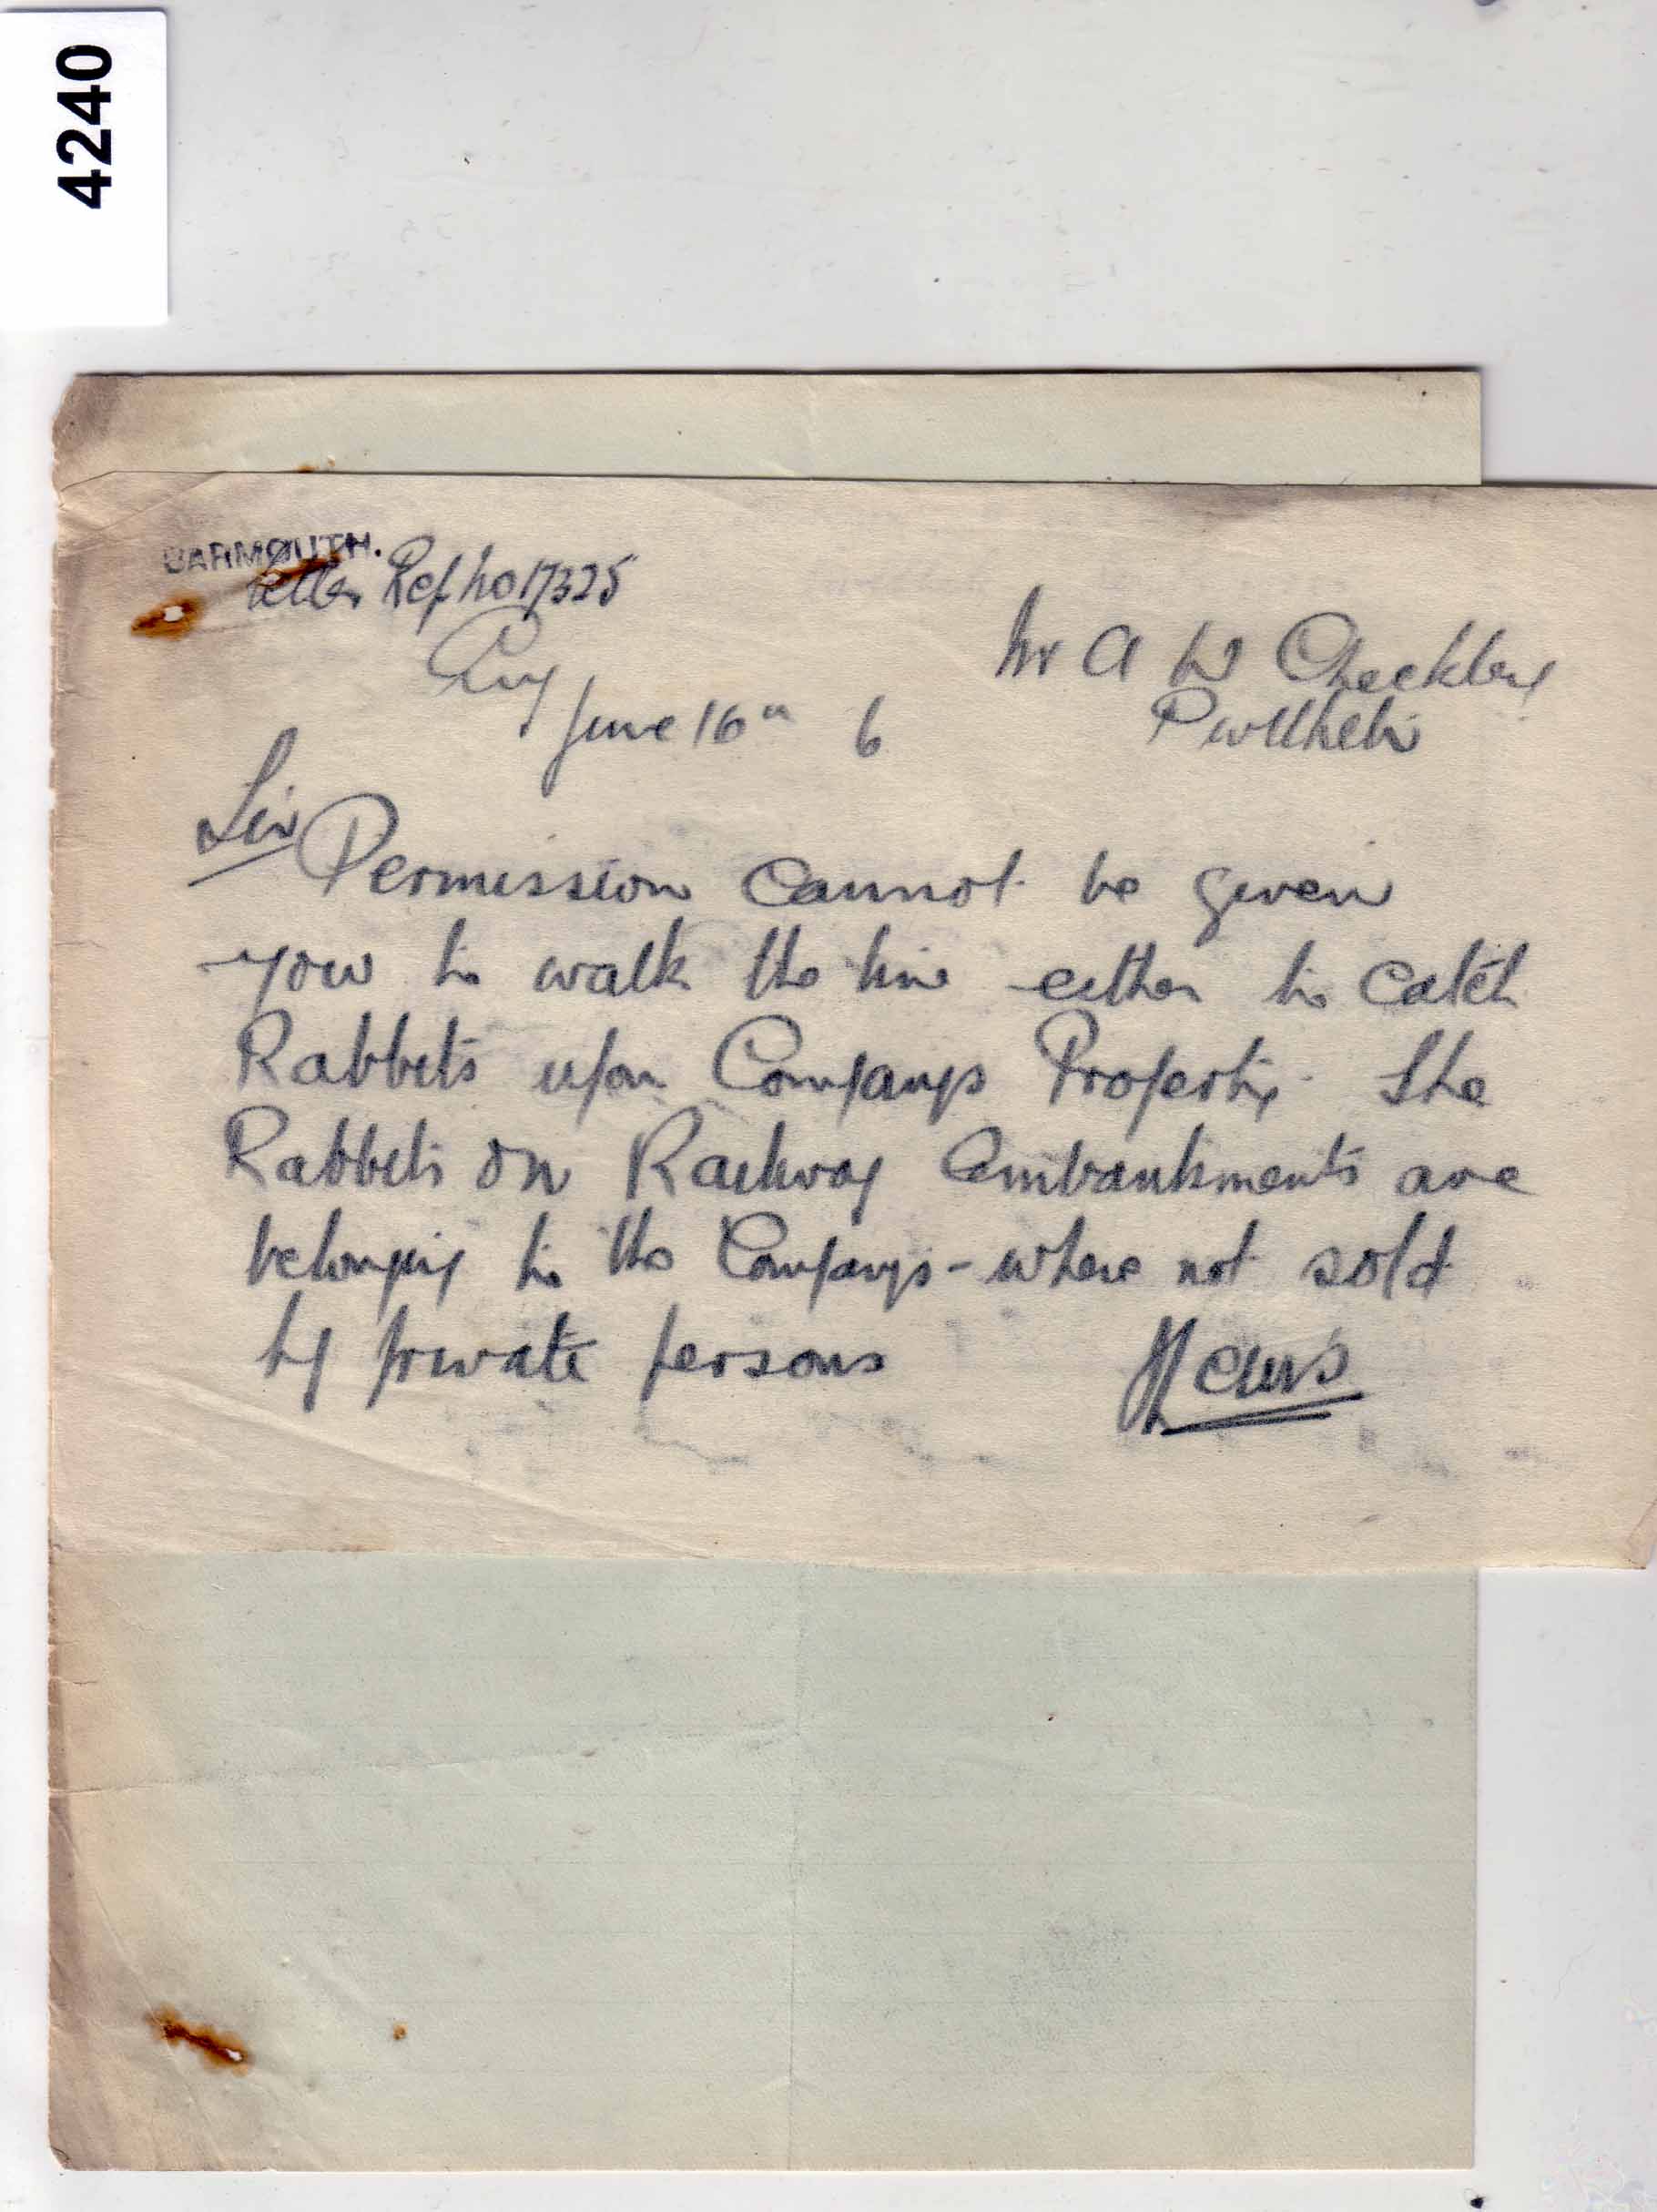 4240
BARMOUTH.
Letter Ref No 17325
Mr A W Checkley
June 16th 6
Pwllheli
Sir
Permission cannot be given
you to walk the line either to catch
Rabbits upon Companys Property. The
Rabbits on Railway Embankments are
belonging to the Companys - where not sold
by private persons
J Lewis